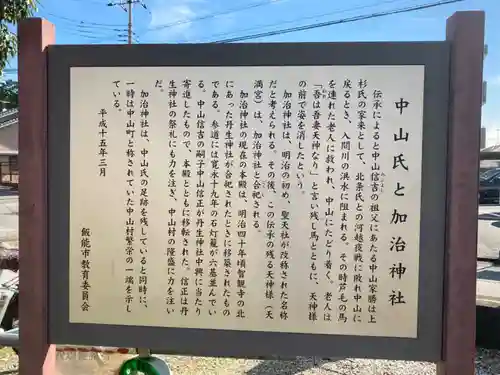 中山氏と加治神社
伝承によると中山信吉の祖父にあたる中山家勝は上
杉氏の家来として、北条氏との河越夜戦に敗れ中山に
戻るとき、入間川の洪水に阻まれる。その時芦毛の馬
を連れた老人に救われ、中山にたどり着く。老人は
「吾は吾妻天神なり」と言い残し馬とともに、天神様
の前で姿を消したという。
加治神社は、明治の初め、聖天社が改称された名称
だと考えられる。その後、この伝承の残る天神様（天
満宮）は、加治神社と合祀される。
加治神社の現在の本殿は、明治四十年頃智観寺の北
にあった丹生神社が合祀されたときに移築されたもの
である。参道には寛永十九年の石灯籠が六基並んでい
る。中山信吉の嗣子中山信正が丹生神社中興に当たり
寄進したもので、本殿とともに移転された。信正は丹
生神社の祭礼にも力を注ぎ、中山村の隆盛に力を注い
だ。
加治神社は、中山氏の足跡を残していると同時に、
一時は中山町と称されていた中山村繁栄の一端を示し
ている。
平成十五年三月
飯能市教育委員会